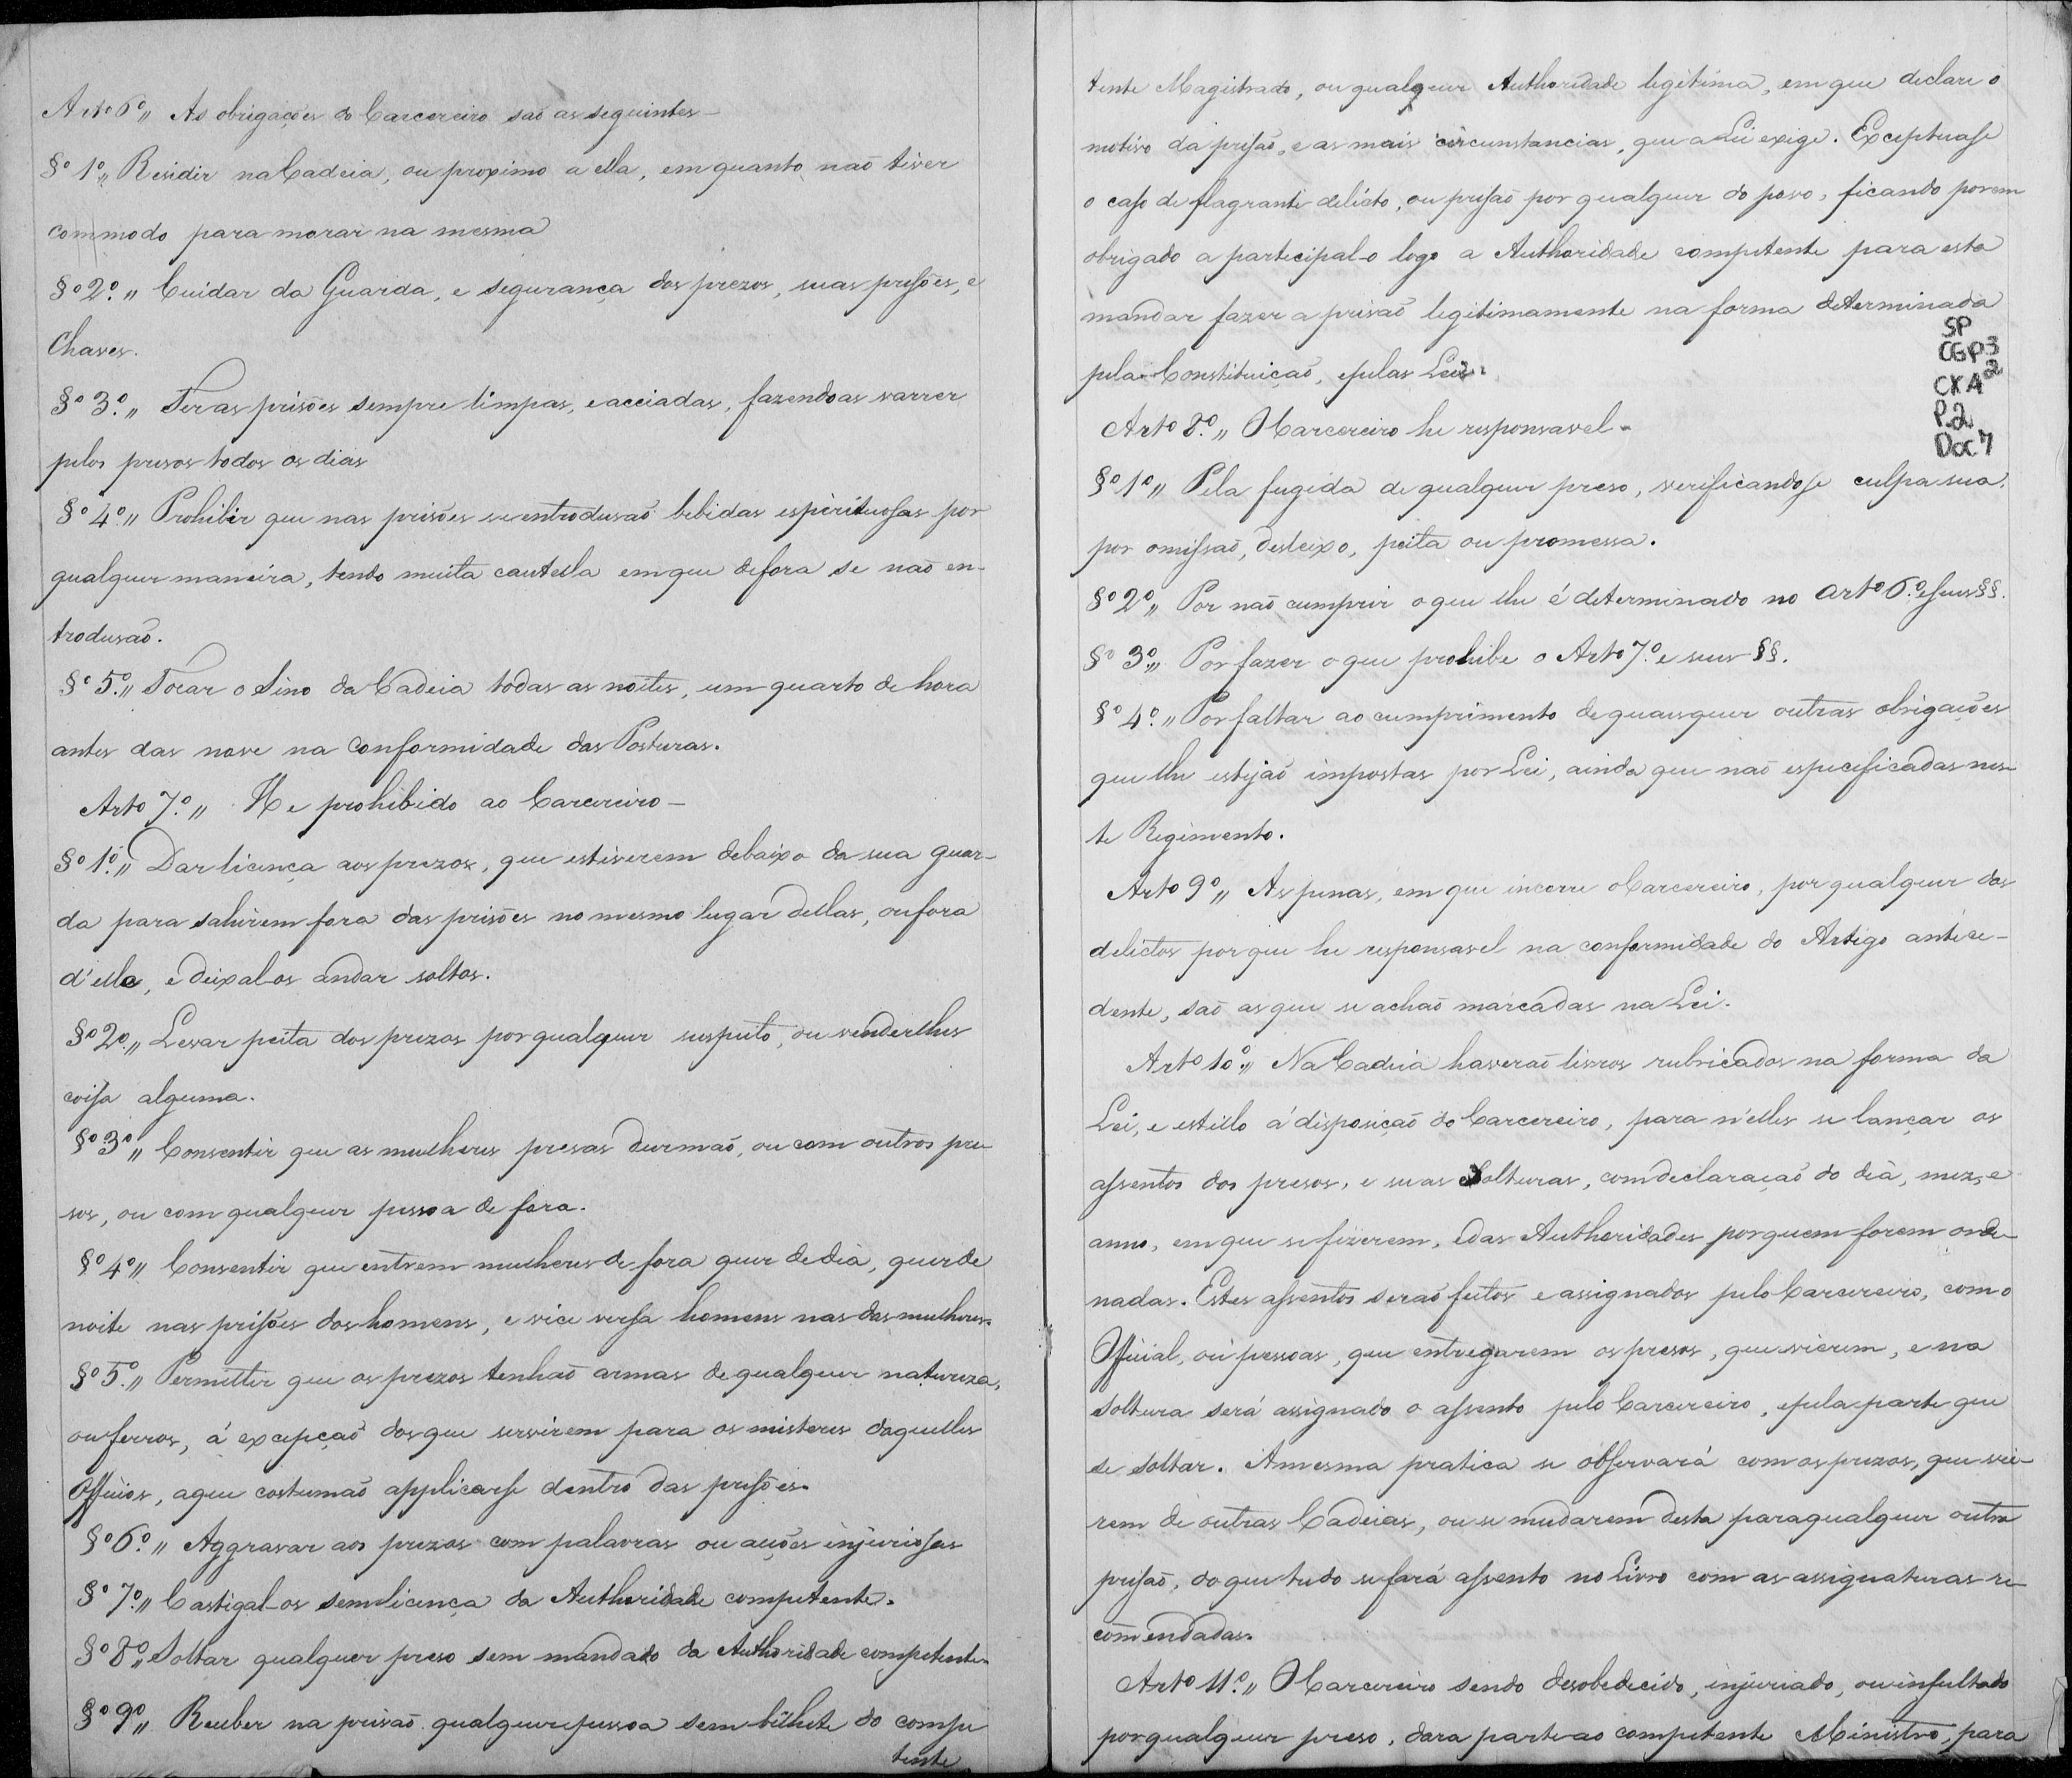 Arto 6º,, As obrigações do Carcereiro saõ as seguintes—
§º 1º,, Residir na Cadeia, ou proximo a ella, em quanto naõ tiver
commodo para morar na mesma
§º 2º,, Cuidar da Guarda, e segurança dos prezos, suas prisões, e
Chaves.
§º 3º,, Ter as prisões sempre limpas, e acciadas, fazendoas varrer
pelos presos todos os dias
§º 4º,, Prohibir que nas prisões se entrodusaõ bebidas espirituosas por
qualquer maneira, tendo muita cautella em que de fora se naõ en-
trodusaõ.
§º 5º,, Tocar o Sino da Cadeia todas as noites, um quarto de hora
antes das nove na conformidade das Posturas.
Arto 7º,, He prohibido ao Carcereiro—
§º 1º,, Dar licença aos prezos, que estiverem debaixo da sua guar-
da para sahirem fora das prisões no mesmo lugar dellas, ou fora
d'ella, e deixal-os andar soltos.
§º 2º,, Levar peita dos prezos por qualquer respeito, ou venderlhes
coisa alguma.
§º 3º,, Consentir que as mulheres presas durmaõ, ou com outros pre
sos, ou com qualquer pessoa de fora.
§º 4º,, Consentir que entrem mulheres de fora quer de dia, quer de
noite nas prisões dos homens, e vice versa homens nas das mulheres.
§º 5º,, Permittir que os prezos tenhaõ armas de qualquer natureza,
ou ferros, á excepçaõ dos que servirem para os misteres daquelles
Officios, a que costumaõ applicarse dentro das prisões.
§º 6º,, Aggravar aos prezos com palavras ou acções injuriosas
§º 7º,, Castigal-os sem licença da Authoridade competente.
§º 8º,, Soltar qualquer preso sem mandado da Authoridade competente.
§º 9º,, Receber na prisaõ qualquer pessoa sem bilhete do compe
tente
tente Magistrado, ou qualquer Authoridade legitima, em que declare o
motivo da prisaõ, e as mais circunstancias, que a Lei exige. Exceptuase
o caso de flagrante delicto, ou prisaõ por qualquer do povo, ficando porem
obrigado a participal-o logo a Authoridade competente para esta
mandar fazer a prisaõ legitimamente na forma determinada
pela Constituiçaõ, e pelas Leis.
SP
CGP3
CXA 2
P.2
Doc 7
Arto 8º,, O Carcereiro he responsavel-
§º 1º,, Pela fugida de qualquer preso, verificandose culpa sua,
por omissaõ, desleixo, peita ou promessa.
§º 2º,, Por naõ cumprir o que lhe é determinado no Arto 6º e seus §§.
§º 3º,, Por fazer o que prohibe o Arto 7º e seus §§.
§º 4º,, Por faltar ao cumprimento de quaesquer outras obrigações
que lhe estejaõ impostas por Lei, ainda que naõ especificadas nes-
te Regimento.
Arto 9º,, As penas, em que incorre o Carcereiro, por qualquer dos
delictos por que he responsavel na conformidade do Artigo antece-
dente, saõ as que se achaõ marcadas na Lei.
Arto 10º,, Na Cadeia haveraõ livros rubricados na forma da
Lei, e estillo á disposiçaõ do Carcereiro, para n'elles se lançar os
assentos dos presos, e suas Solturas, com declaraçaõ do dia, mez, e
anno, em que se fizerem, e das Authoridades por quem forem orde-
nadas. Estes assentos seraõ feitos e assignados pelo Carcereiro, com o
Official, ou pessoas, que entregarem os presos, que vierem, e na
soltura será assignado o assento pelo Carcereiro, e pela parte que
se soltar. A mesma pratica se observará com os prezos, que vie-
rem de outras Cadeias, ou se mudarem desta para qualquer outra
prisaõ, do que tudo se fará assento no Livro com as assignaturas re-
comendadas.
Arto 11º,, O Carcereiro sendo desobedecido, injuriado, ou insultado
por qualquer preso, dara parte ao competente Ministro, para